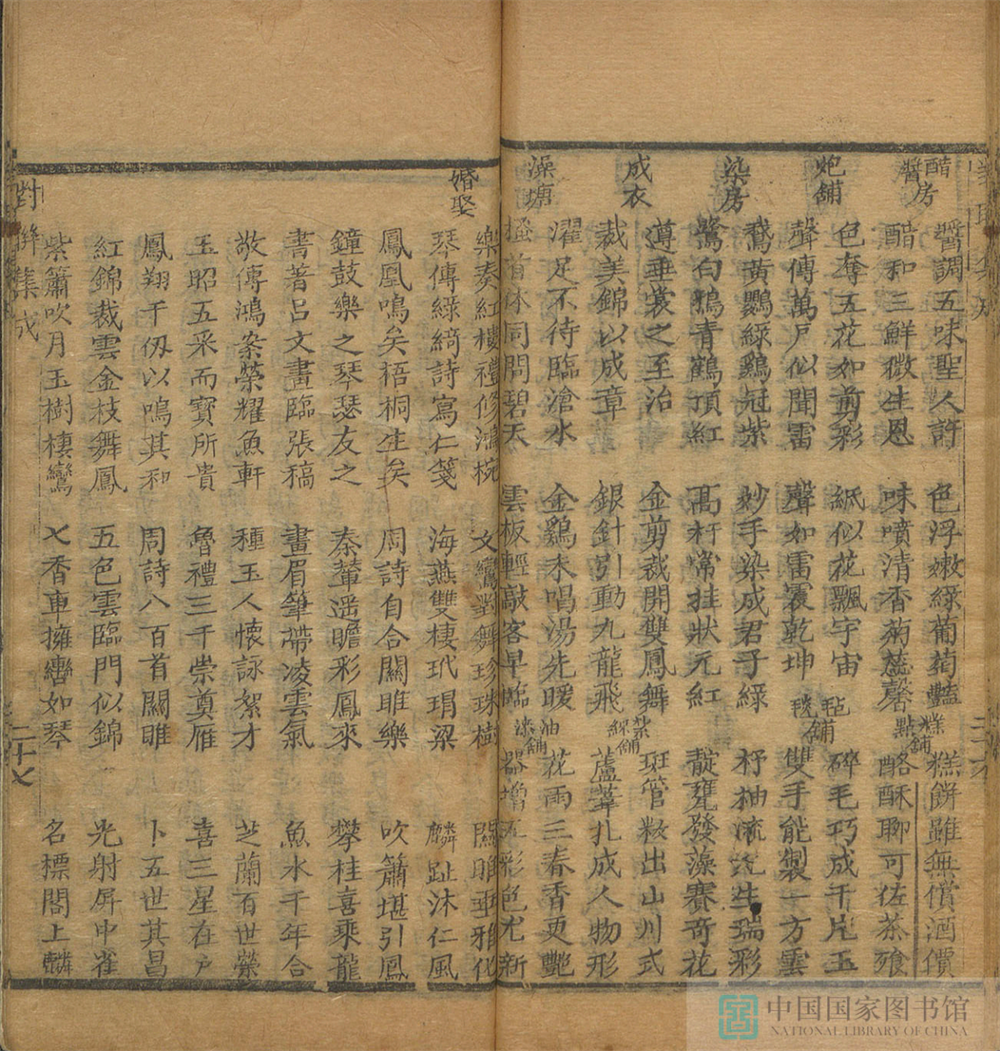 醋房
醬
醬調五味聖人許
色浮嫩綠葡萄豔
糕點舖
糕餅雖無償酒價
醋和三鮮微生恩
味噴清香菊蕋馨
酪酥聊可佐蒸飱
炮舖
色奪五花如剪彩
紙似花飄宇宙
毡毯舖
碎毛巧成千片玉
聲傳萬戸似聞雷
聲如雷震乾坤
雙手能製一方雲
染房
鵞黃鸚綠鷄冠紫
妙手染成君子綠
杼柚流光生瑞彩
鷺白鴉青鶴頂紅
高杆常挂狀元紅
靛甕發藻賽奇花
成衣
遵垂裳之至治
金剪裁開雙鳳舞
紮綵舖
斑管粧出山川式
裁美錦以成章
銀針引動九龍飛
蘆葦扎成人物形
澡塘
濯足不待臨滄水
金鷄未唱湯先暖
油漆舖
花雨三春香更艷
搔首休同問碧天
雲板輕敲客早臨
器增五彩色尤新
婚娶
樂奏紅樓禮修鴻椀
文鸞對舞珍珠樹
關雎亟雅化
琴傳綠綺詩寫仁箋
海燕雙棲玳瑁梁
麟趾沐仁風
鳳凰鳴矣梧桐生矣
周詩自合關雎樂
吹簫堪引鳳
鐘鼓樂之琴瑟友之
秦輦遥瞻彩鳳來
攀桂喜乘龍
書著呂文畫臨張稿
畫眉筆帶凌雲氣
魚水千年合
敬傳鴻案榮耀魚軒
種玉人懷詠絮才
芝蘭百世榮
玉昭五采而寶所貴
魯禮三千崇奠雁
喜三星在户
鳳翔千仭以鳴其和
周詩八百首關雎
卜五世其昌
紅錦裁雲金枝舞鳳
五色雲臨門似錦
光射屏中雀
紫簫吹月玉樹棲鸞
七香車擁轡如琴
名標閣上麟
對聯集成
二十七
中国国家图书馆
NATIONAL LIBRARY OF CHINA